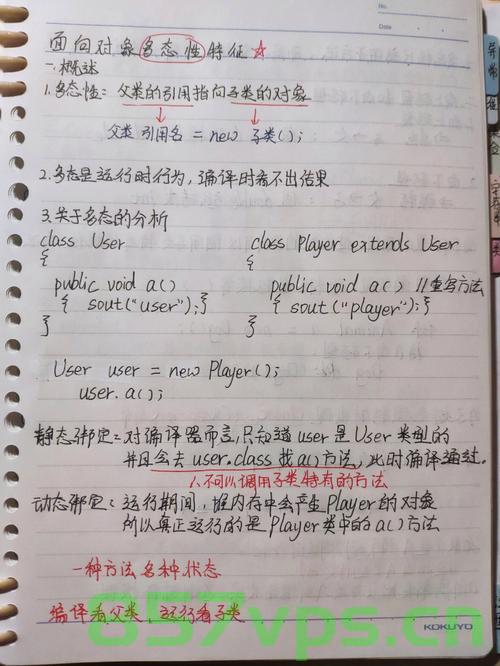 No.
Date
面向对象多态性特征 ☆
一.概述
1.多态性：父类的引用指向子类的对象
父类 引用名 = new 子类();
2.多态是运行时行为，编译时看不出结果
3.关于多态的分析
class User
{
public void a()
{ sout("user"); }
}
class Player extends User
{
public void a() //重写方法
{ sout("player"); }
}
User user = new Player();
user.a();
静态绑定：对编译器而言，只知道user是User类型的
并且会去user.class找a()方法，此时编译通过.
1.不可以调用子类特有的方法
动态绑定：运行期间，堆内存中会产生Player的对象
所以真正运行的是Player类中的a()方法
一种方法多种状态
编译看父类，运行看子类
657vps.cn
KOKUYO
异常
类